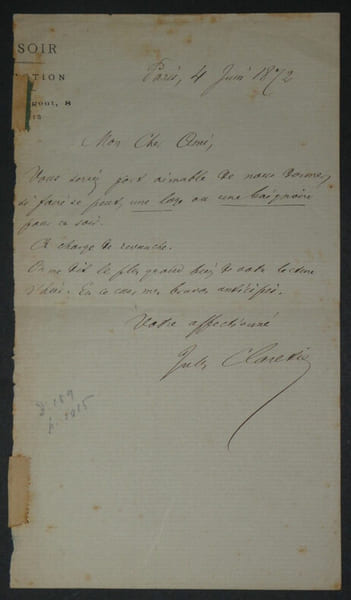 SOIR
CTION
gout, 8
Paris, 4 Juin 1872
Mon Cher Ami,
Vous seriez fort aimable de nous donner,
si faire se peut, une loge ou une baignoire
pour ce soir.
A charge de revanche.
On me dit le plus grand bien de votre lecture
d'hier. En ce cas, mes bravos anticipés.
Votre affectionné
Jules Claretie